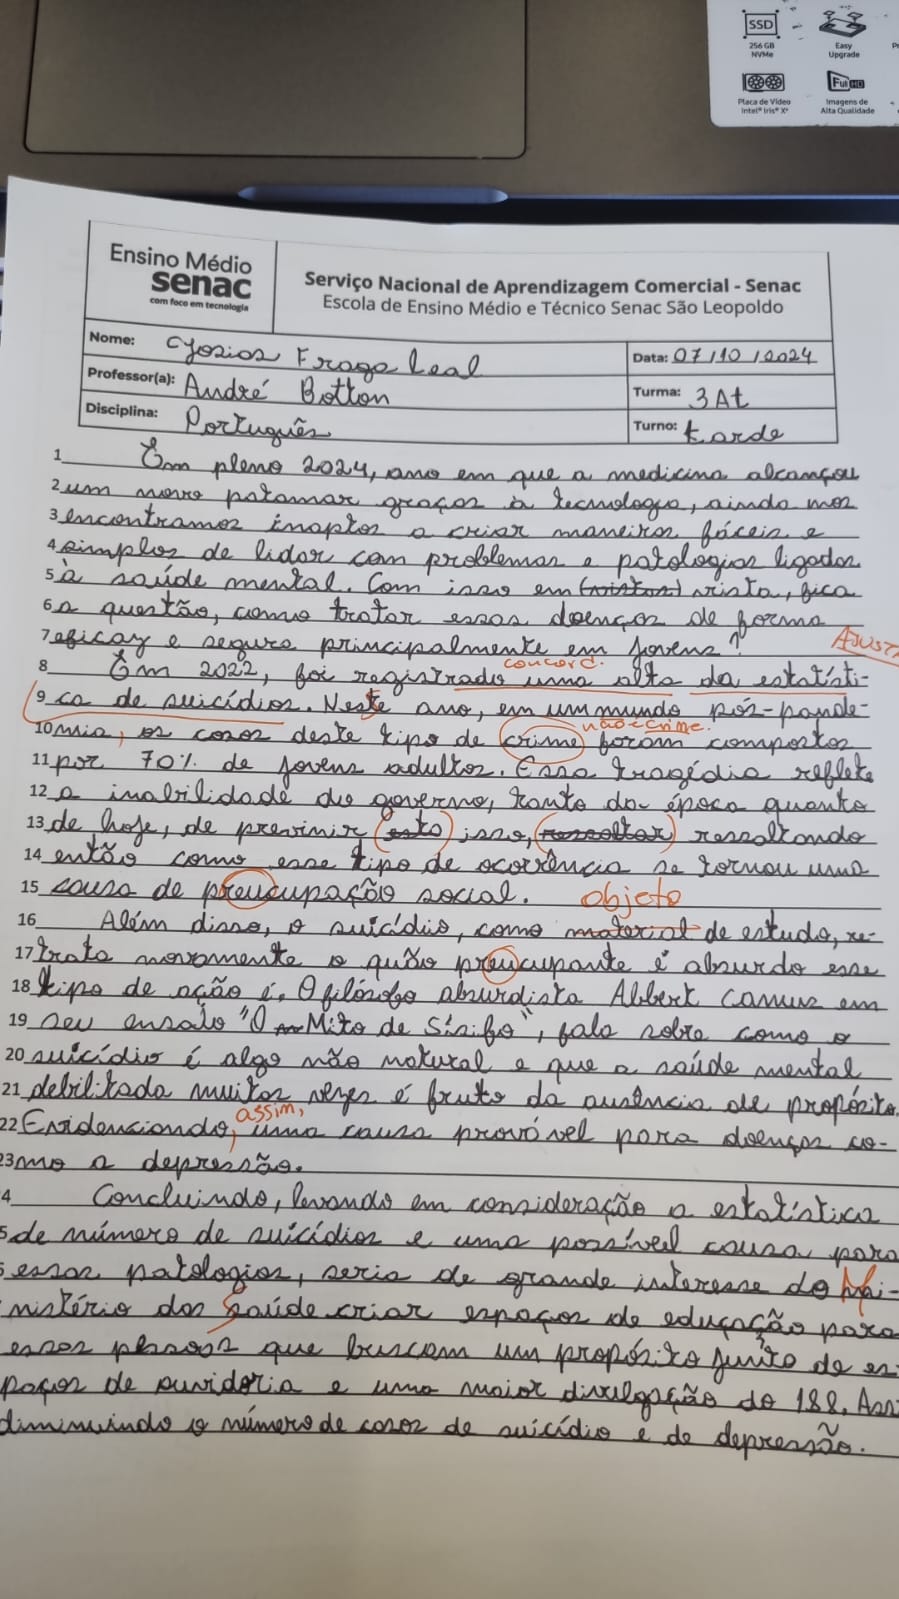 SSD
256 GB
NVMe
Easy
Upgrade
Placa de Vídeo
Intel® Iris® Xe
Full HD
Imagens de
Alta Qualidade
Ensino Médio
senac
com foco em tecnologia
Serviço Nacional de Aprendizagem Comercial - Senac
Escola de Ensino Médio e Técnico Senac São Leopoldo
Nome: Josias Fraga Leal
Data: 07/10/2024
Professor(a): André Botton
Turma: 3At
Disciplina: Português
Turno: tarde
1 Em pleno 2024, ano em que a medicina alcançou
2 um novo patamar graças à tecnologia, ainda nos
3 encontramos inaptos a criar maneiras fáceis e
4 simples de lidar com problemas e patologias ligadas
5 à saúde mental. Com isso em (vistas) vista, fica
6 a questão, como tratar essas doenças de forma
7 eficaz e segura principalmente em jovens?
AJUSTA
concord.
8 Em 2022, foi registrado uma alta da estatísti-
9 ca de suicídios. Neste ano, em um mundo pós-pande-
não é crime.
10 mia, os casos deste tipo de crime foram compostos
11 por 70% de jovens adultos. Essa tragédia reflete
12 a inabilidade do governo, tanto da época quanto
13 de hoje, de previnir (esto) isso, (ressaltar) ressaltando
14 então como esse tipo de ocorrência se tornou uma
15 causa de preucupação social.
objeto
16 Além disso, o suicídio, como material de estudo, re-
17 trata novamente o quão preucupante é absurdo esse
18 tipo de ação é. O filósofo absurdista Albert Camus em
19 seu ensaio "O Mito de Sísifo", fala sobre como o
20 suicídio é algo não natural e que a saúde mental
21 debilitada muitas vezes é fruto da ausência de propósito.
assim,
22 Evidenciando, uma causa provável para doenças co-
23 mo a depressão.
4 Concluindo, levando em consideração a estatística
5 de número de suicídios e uma possível causa para
essas patologias, seria de grande interesse do Mi-
nistério das Saúde criar espaços de educação para
essas pessoas que buscam um propósito junto de es-
paços de ouvidoria e uma maior divulgação do 188. Ass
diminuindo o número de casos de suicídio e de depressão.